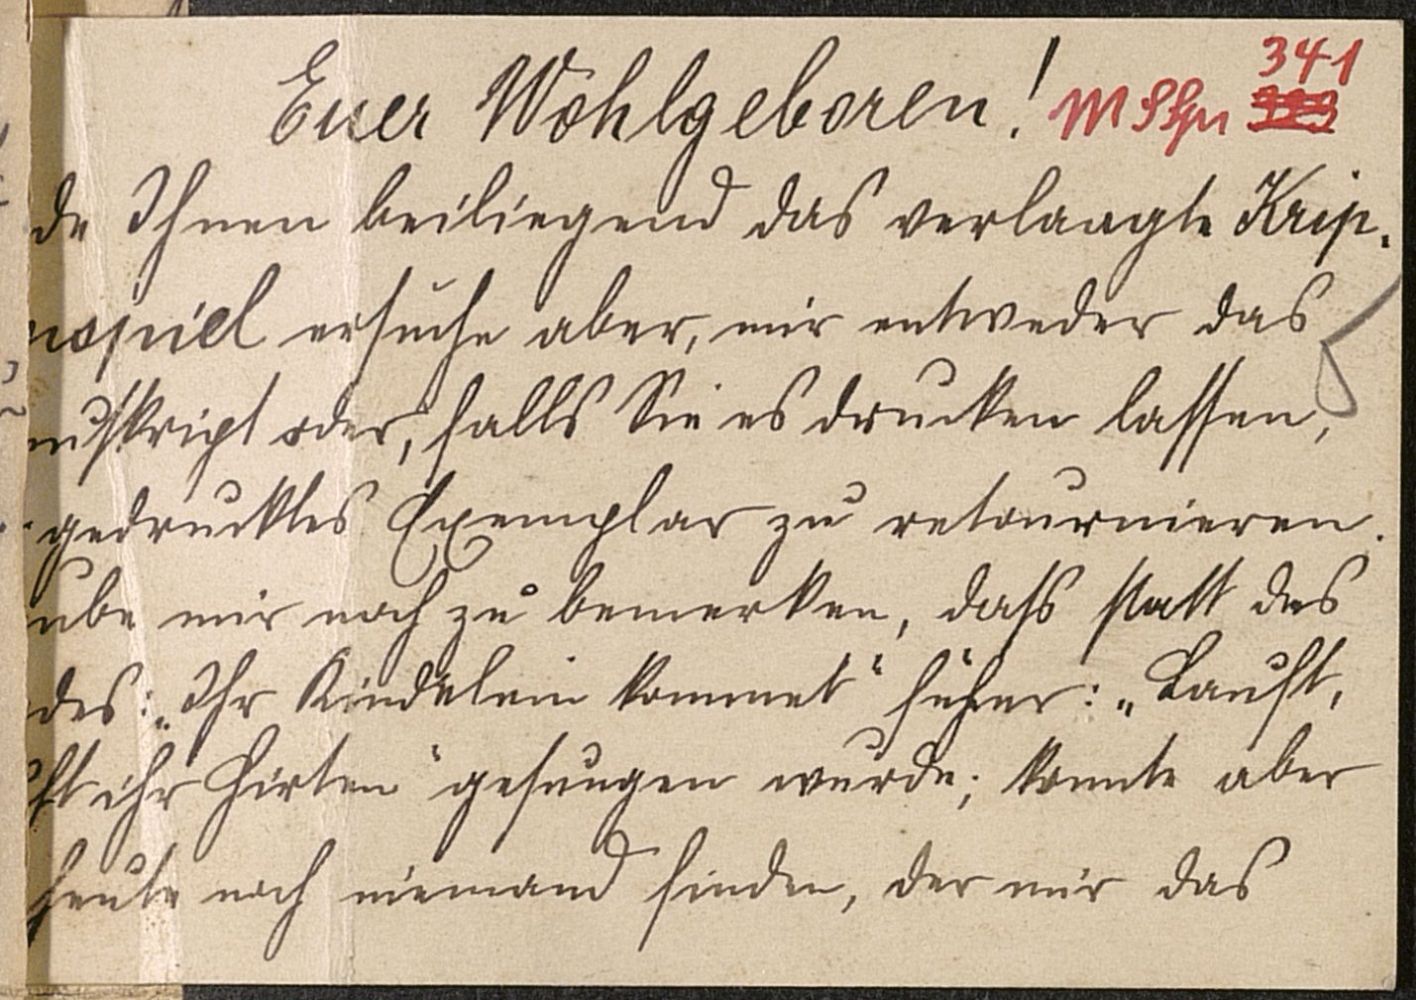 341
Euer Wohlgeboren!
de Ihnen beiliegend das verlangte Krip-
nspiel ersuche aber, mir entweder das
nuskript oder, falls Sie es drucken lassen,
gedrucktes Exemplar zu retournieren.
ube mir noch zu bemerken, dass statt des
des: „Ihr Kindelein kommet" früher: „Lauft,
ft ihr Hirten" gesungen wurde; konnte aber
heute noch niemand finden, der mir das